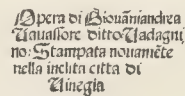 Opera di Giouāniandrea
Uauassore ditto Uadagni
no: Stampata nouamēte
nella inclita citta di
Uinegia